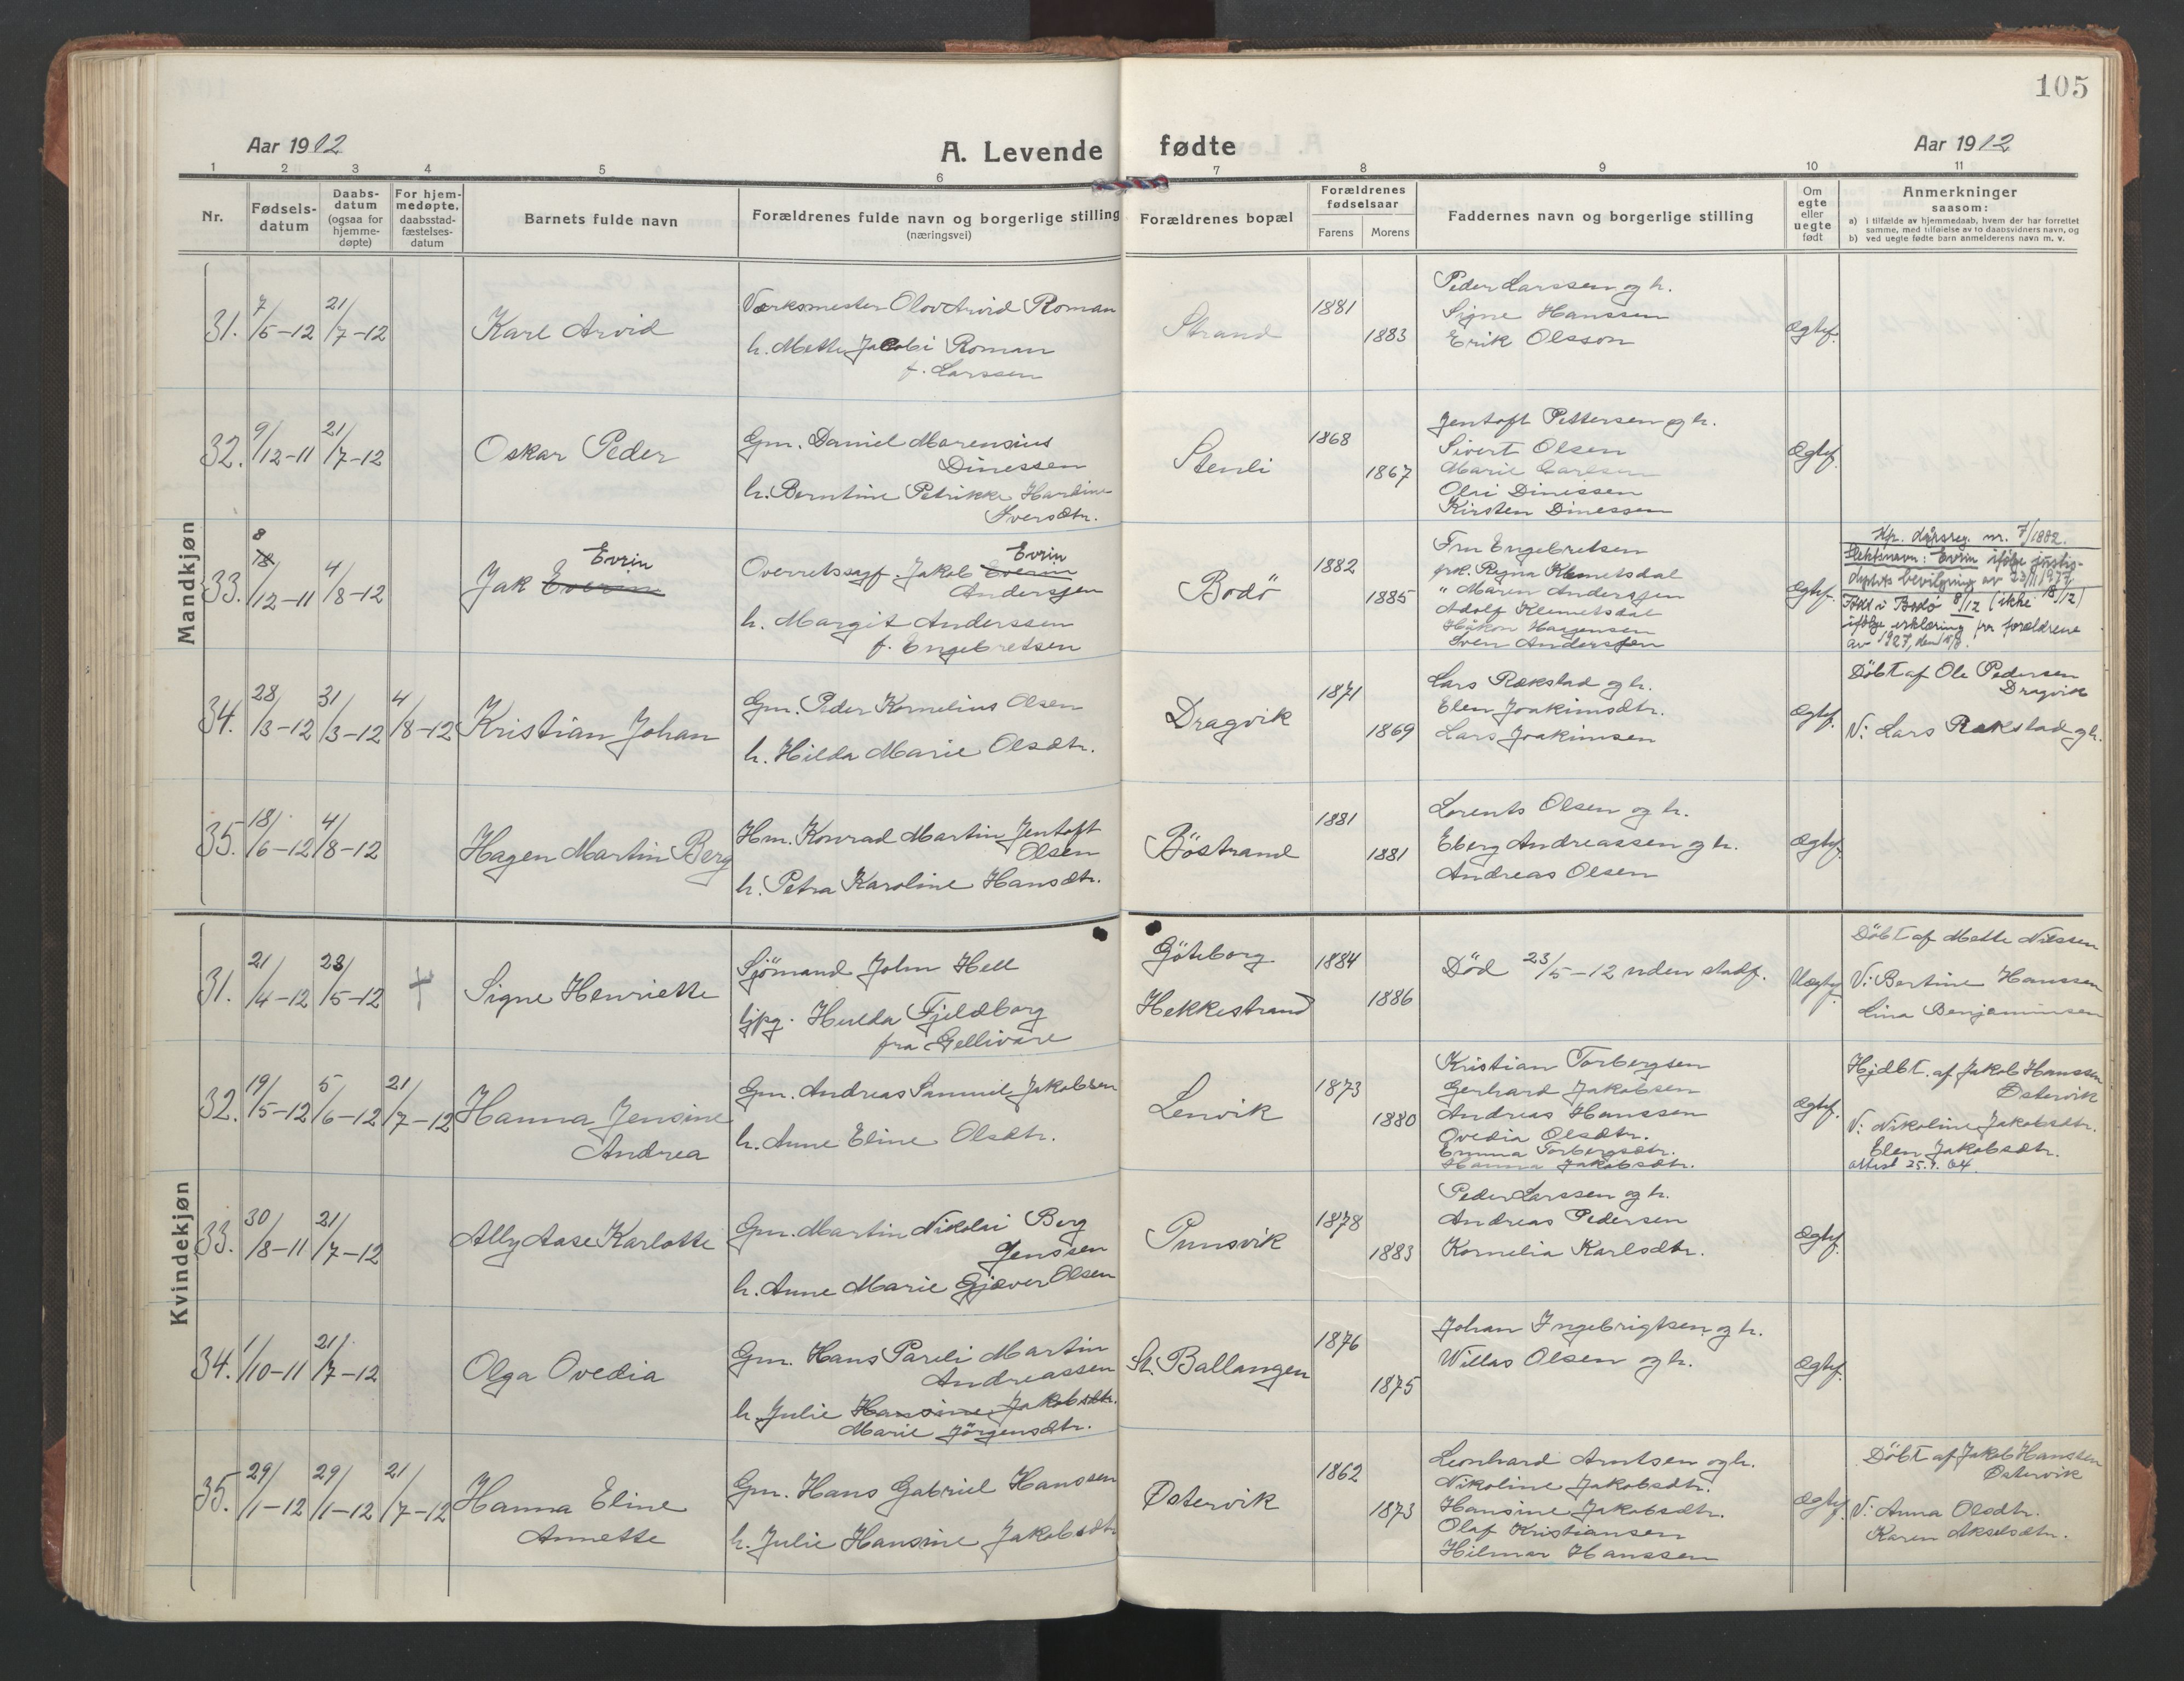 105
Aar 1912
A. Levende fødte
Aar 1912
1 2 3 4 5 6 7 8 9 10 11
Nr.
Fødsels-
datum
Daabs-
datum
(ogsaa for
hjemme-
døpte)
For hjem-
medøpte,
daabsstad-
fæstelses-
datum
Barnets fulde navn
Forældrenes fulde navn og borgerlige stilling
(næringsvei)
Forældrenes bopæl
Forældrenes
fødselsaar
Farens Morens
Faddernes navn og borgerlige stilling
Om
egte
eller
uegte
født
Anmerkninger
saasom:
a) i tilfælde av hjemmedaab, hvem der har forrettet
samme, med tilføielse av to daabsvidners navn, og
b) ved uegte fødte barn anmelderens navn m. v.
Mandkjøn
31. 7/5-12 21/7-12
Karl Arvid
Værksmester Olov Arvid Roman
h. Mette Jacobi Roman
f. Larssen
Strand
1881
1883
Peder Larssen og h.
Signe Hanssen
Erik Olsson
Ægtef.
32. 9/12-11 21/7-12
Oskar Peder
Gm. Daniel Marensius
Dinessen
h. Berntine Petrikke Hartine
Iversdtr.
Stenli
1868
1867
Jentoft Pettersen og h.
Sivert Olsen
Marie Carlsen
Olai Dinessen
Kirsten Dinessen
Ægtef.
33. 8 18/12-11 4/8-12
Evrin
Jak Everin
Evrin
Overretssagf. Jakob Everin
Anderssen
h. Margit Anderssen
f. Engebretsen
Bodö
1882
1885
Fru Engebretsen
frk. Ragna Klemetsdal
" Maren Anderssen
Adolf Klemetsdal
Håkon Haagensen
Sven Anderssen
Ægtef.
Kfr. dåpsreg. nr. 7/1882.
Slektsnavn: Evrin ifölge justis-
deptets bevilgning av 23/11 1927
Födt i Bodø 8/12 (ikke 18/12)
ifölge erklæring fra forældrene
av 1927, den
34. 28/3-12 31/3-12 4/8-12
Kristian Johan
Gm. Peder Kornelius Olsen
h. Hilda Marie Olsdtr.
Dragvik
1871
1869
Lars Rækstad og h.
Elen Joakimsdtr.
Lars Joakimsen
Ægtef.
Döbt af Ole Pedersen
Dragvik
V: Lars Rækstad og h.
35. 18/6-12 4/8-12
Hagen Martin Berg
Hm. Konrad Martin Jentoft
Olsen
h. Petra Karoline Hansdtr.
Böstrand
1881
1881
Lorents Olsen og h.
Eberg Andreassen og h.
Andreas Olsen
Ægtef.
Kvindekjøn
31. 21/4-12 23/5-12 +
Signe Henriette
Sjömand John Hell
tjpg. Hulda Fjeldborg
fra Gellivare
Göteborg
Hekkestrand
1884
1886
Död 23/5-12 uden stadf.
Uægtef.
Döbt af Mette Nilssen
V: Bertine Hanssen
Lina Benjaminsen
32. 19/5-12 5/6-12 21/7-12
Hanna Jensine
Andrea
Gm. Andreas Samuel Jakobsen
h. Anne Eline Olsdtr.
Lenvik
1873
1880
Kristian Torbergsen
Gerhard Jakobsen
Andreas Hanssen
Ovedia Olsdtr.
Emma Torbergsdtr.
Hanna Jakobsdtr.
Ægtef.
Hjdbt. af Jakob Hanssen
Østervik
V: Nikoline Jakobsdtr.
Elen Jakobsdtr.
attest 25.9.64.
33. 30/8-11 21/7-12
Ally Aase Karlotte
Gm. Martin Nikolai Berg
Jenssen
h. Anne Marie Gjæver Olsen
Punsvik
1878
1883
Peder Larssen og h.
Andreas Pedersen
Kornelia Karlsdtr.
Ægtef.
34. 1/10-11 21/7-12
Olga Ovedia
Gm. Hans Pareli Martin
Andreassen
h. Julie Hansine Jakobsdtr.
Marie Jörgensdtr.
St. Ballangen
1876
1875
Johan Ingebrigtsen og h.
Willas Olsen og h.
Ægtef.
35. 29/1-12 29/1-12 21/7-12
Hanna Eline
Annette
Gm. Hans Gabriel Hanssen
h. Julie Hansine Jakobsdtr
Østervik
1862
1873
Leonhard Arntsen og h.
Nikoline Jakobsdtr.
Hansine Jakobsdtr.
Olaf Kristiansen
Hilmar Hanssen
Ægtef.
Döbt af Jakob Hanssen
Østervik
V: Anna Olsdtr.
Karen Akselsdtr.